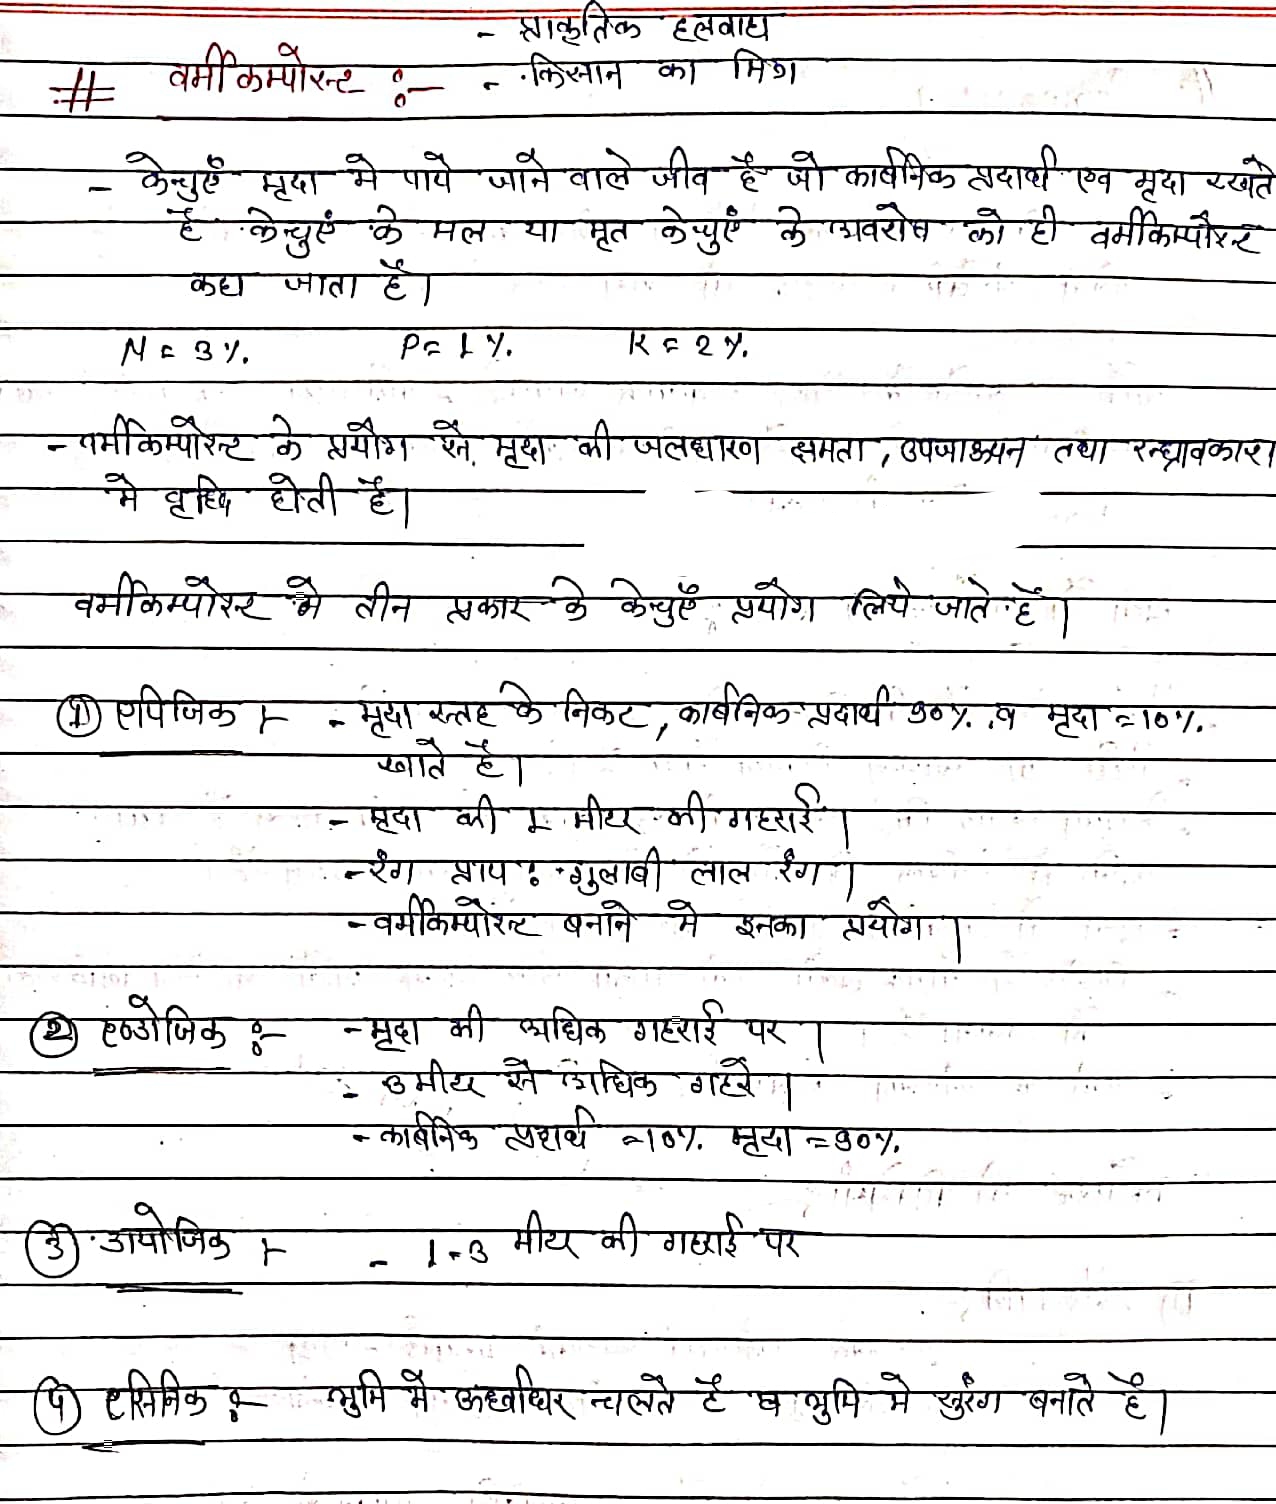 - प्राकृतिक हलवाह
# वर्मीकम्पोस्ट :- - किसान का मित्र
- केन्चुएँ मृदा मे पाये जाने वाले जीव है जो कार्बनिक प्रदार्थ एव मृदा रखते
है केन्चुएं के मल या मृत केन्चुएं के अवशेष को ही वर्मीकम्पोस्ट
कहा जाता है।
N = 3%. P = 1%. K = 2%.
- वर्मीकम्पोस्ट के प्रयोग से मृदा की जलधारण क्षमता, उपजाऊपन तथा रन्ध्रावकाश
मे वृद्धि होती है।
वर्मीकम्पोस्ट मे तीन प्रकार के केन्चुएँ प्रयोग लिये जाते है।
① एपिजिक :- - मृदा स्तह के निकट, कार्बनिक प्रदार्थ 90%. व मृदा = 10%.
खाते है।
- मृदा की 1 मीटर की गहराई।
- रंग प्राय : गुलाबी लाल रंग।
- वर्मीकम्पोस्ट बनाने मे इनका प्रयोग।
② एण्डोजिक :- - मृदा की अधिक गहराई पर।
- 3 मीटर से अधिक गहरे।
- कार्बनिक प्रदार्थ = 10%. मृदा = 90%.
③ डायोजिक :- - 1-3 मीटर की गहराई पर
④ एसिनिक :- भुमि मे ऊध्वाधिर चलते है व भुमि मे सुरंग बनाते है।